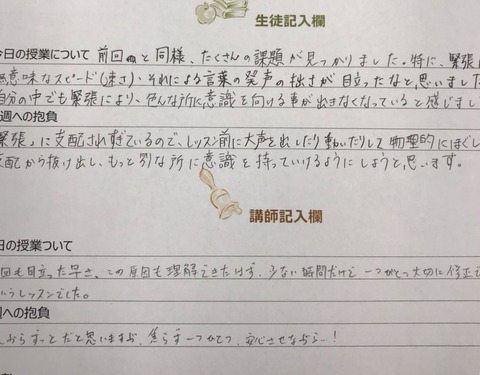 生徒記入欄
今日の授業について 前回と同様、たくさんの課題が見つかりました。特に、緊張に
無意味なスピード(速さ)、それによる言葉の発声の拙さが目立ったなと、思いました
自分の中でも緊張により、色んな所に意識を向ける事が出きなくなっていると感じまし
週への抱負
緊張」に支配されすぎているので、レッスン前に大声を出したり動いたりして物理的にほぐし
支配から抜け出し、もっと別な所に意識を持っていけるようにしようと思います。
講師記入欄
日の授業ついて
回も目立った早さ、この原因も理解できたはず。少ない時間だけど一つ一つ大切に修正
いうレッスンでした。
週への抱負
だと思いますが、焦らず一つ一つ、安心させながら…!